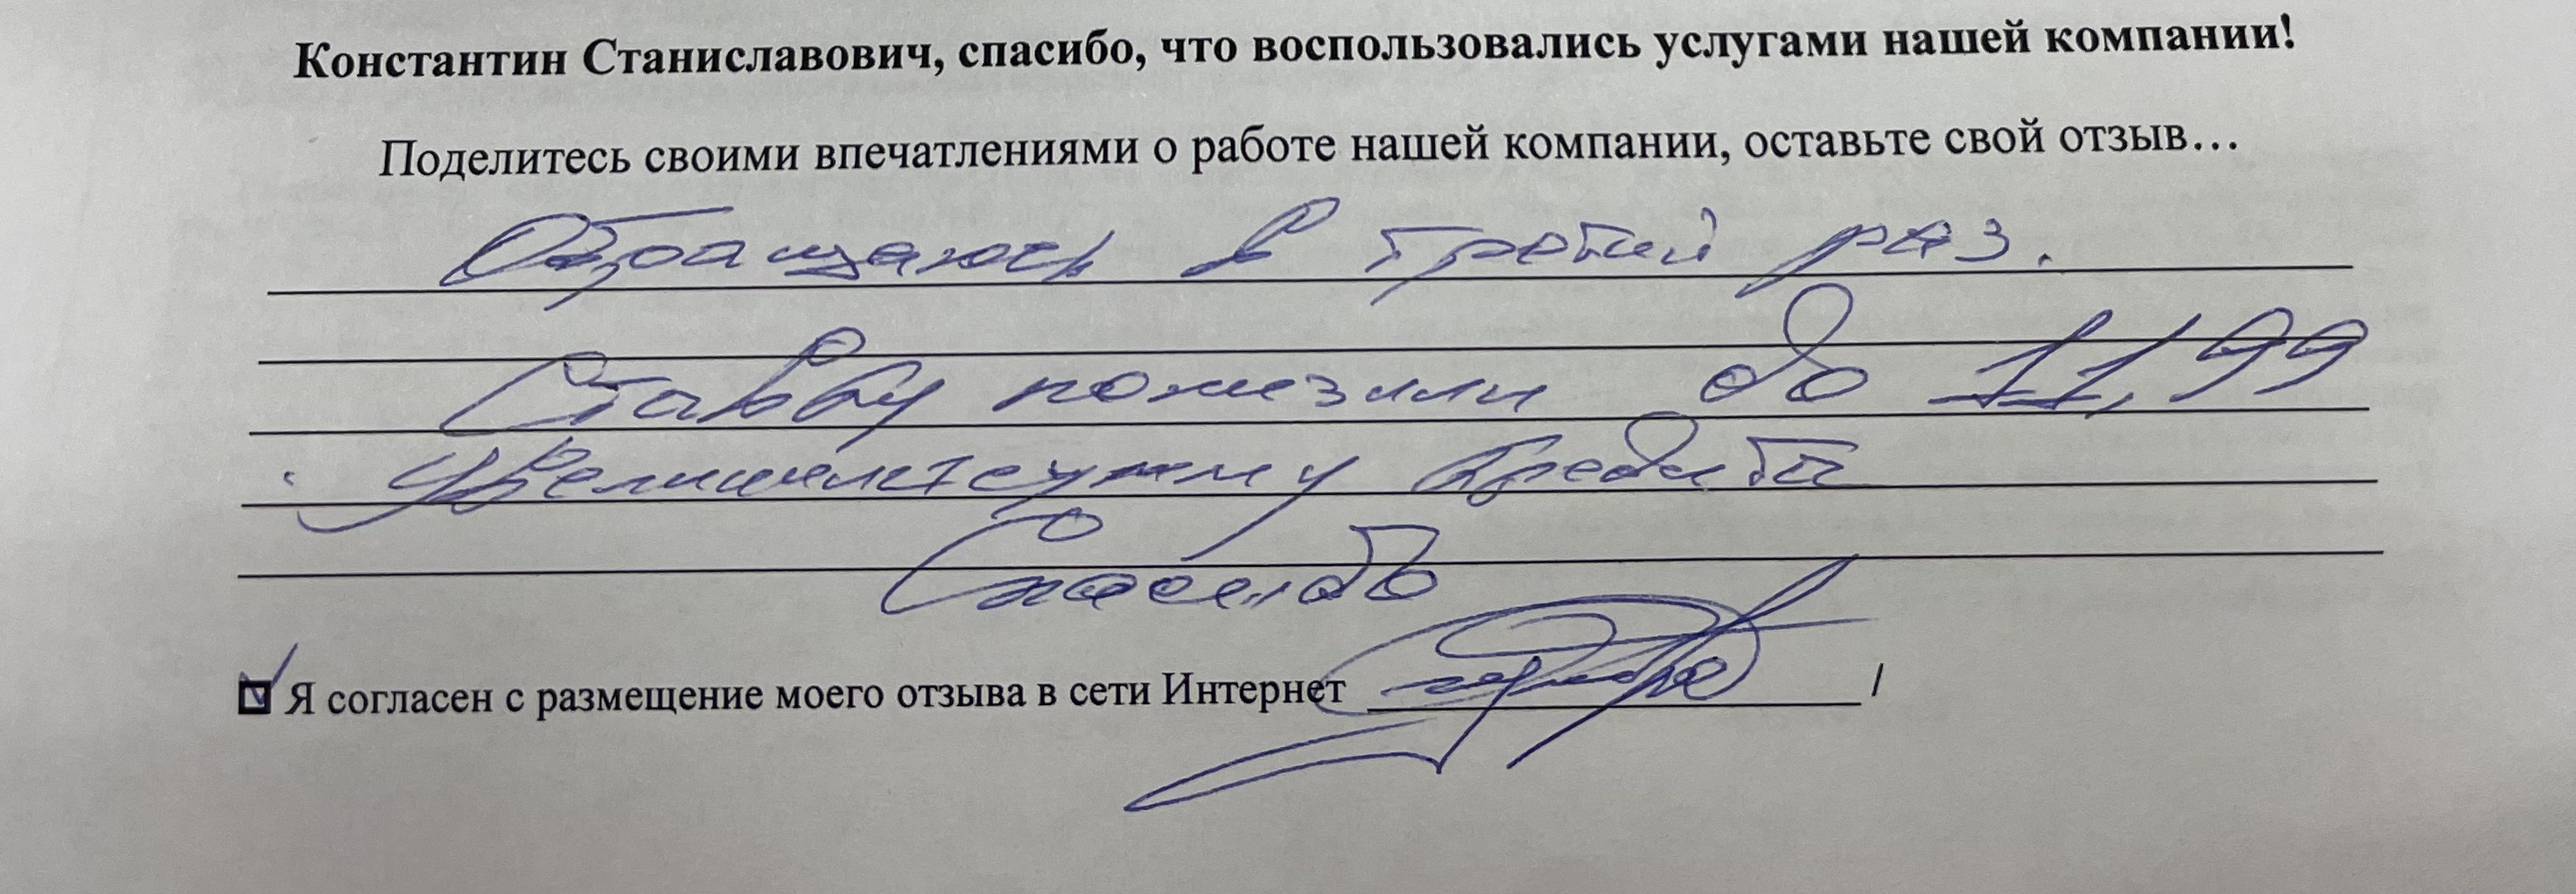 Константин Станиславович, спасибо, что воспользовались услугами нашей компании!
Поделитесь своими впечатлениями о работе нашей компании, оставьте свой отзыв…
Обращаюсь в третий раз.
Ставку понизили до 11,99
сумму кредита
Спасибо
Я согласен с размещение моего отзыва в сети Интернет /